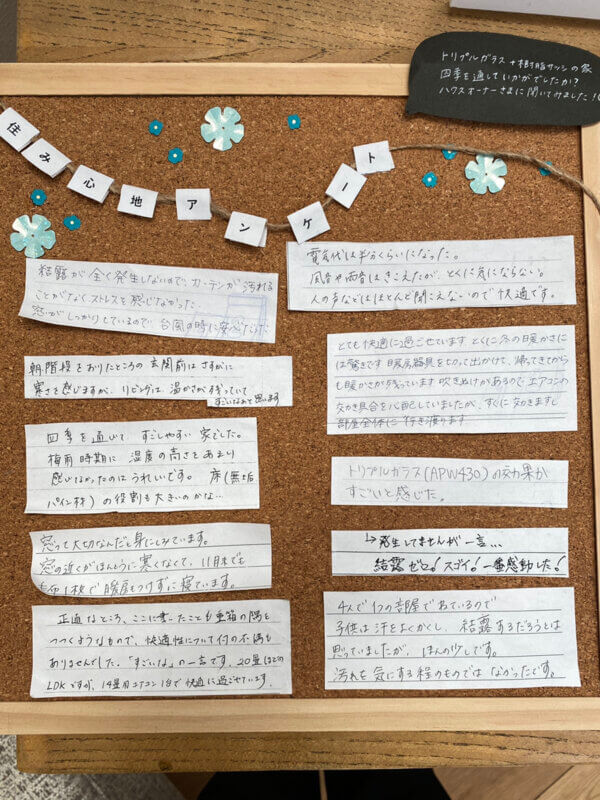 トリプルガラス+樹脂サッシの家
四季を通していかがでしたか?
ハウスオーナーさまに聞いてみました!
住み心地アンケート
結露が全く発生しないので、カーテンが汚れる
ことがなくストレスを感じなかった
窓がしっかりしているので台風の時に安心だった
朝、階段をおりたところの玄関前はさすがに
寒さを感じますが、リビングは温かさが残っていて
すごいなあと思います
四季を通じて、すごしやすい家でした。
梅雨時期に湿度の高さをあまり
感じなかったのはうれしいです。床(無垢
パイン材)の役割も大きいのかな…
窓って大切なんだと身にしみています。
窓の近くがほんとうに寒くなくて、11月までも
布団1枚で暖房もつけずに寝ています。
正直なところ、ここに書いたことも重箱の隅を
つつくようなもので、快適性について何の不満も
ありませんでした。「すごいな」の一言です。20畳ほどの
LDKですが、14畳用エアコン1台で快適に過ごせています。
電気代は半分くらいになった。
風音や雨音はきこえたが、とくに気にならない。
人の声などはほとんど聞こえないので快適です。
とても快適に過ごせています とくに冬の暖かさに
は驚きです 暖房器具を切って出かけて、帰ってきてから
も暖かさが残っています 吹きぬけがあるので エアコンの
効き具合を心配していましたが、すぐに効きますし
部屋全体に行き渡ります
トリプルガラス(APW430)の効果が
すごいと感じた。
↳発生してませんが一言…
結露ゼロ!スゴイ!一番感動した!
4人で1つの部屋でねているので
子供は汗をよくかくし、結露するだろうとは
思っていましたが、ほんの少しです。
汚れを気にする程のものではなかったです。